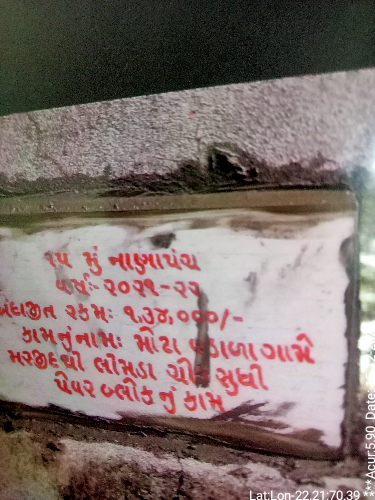 ૧૫ મું નાણાપંચ
વર્ષ:- ૨૦૨૧-૨૨
અંદાજીત રકમ: ૧,૩૪,૦૦૦/-
કામનું નામ: મોટા વડાળા ગામે
મસ્જીદથી લીમડા ચોક સુધી
પેવર બ્લોક નું કામ
Lat:Lon-22.21:70.39
***Acur:5.90 Date: